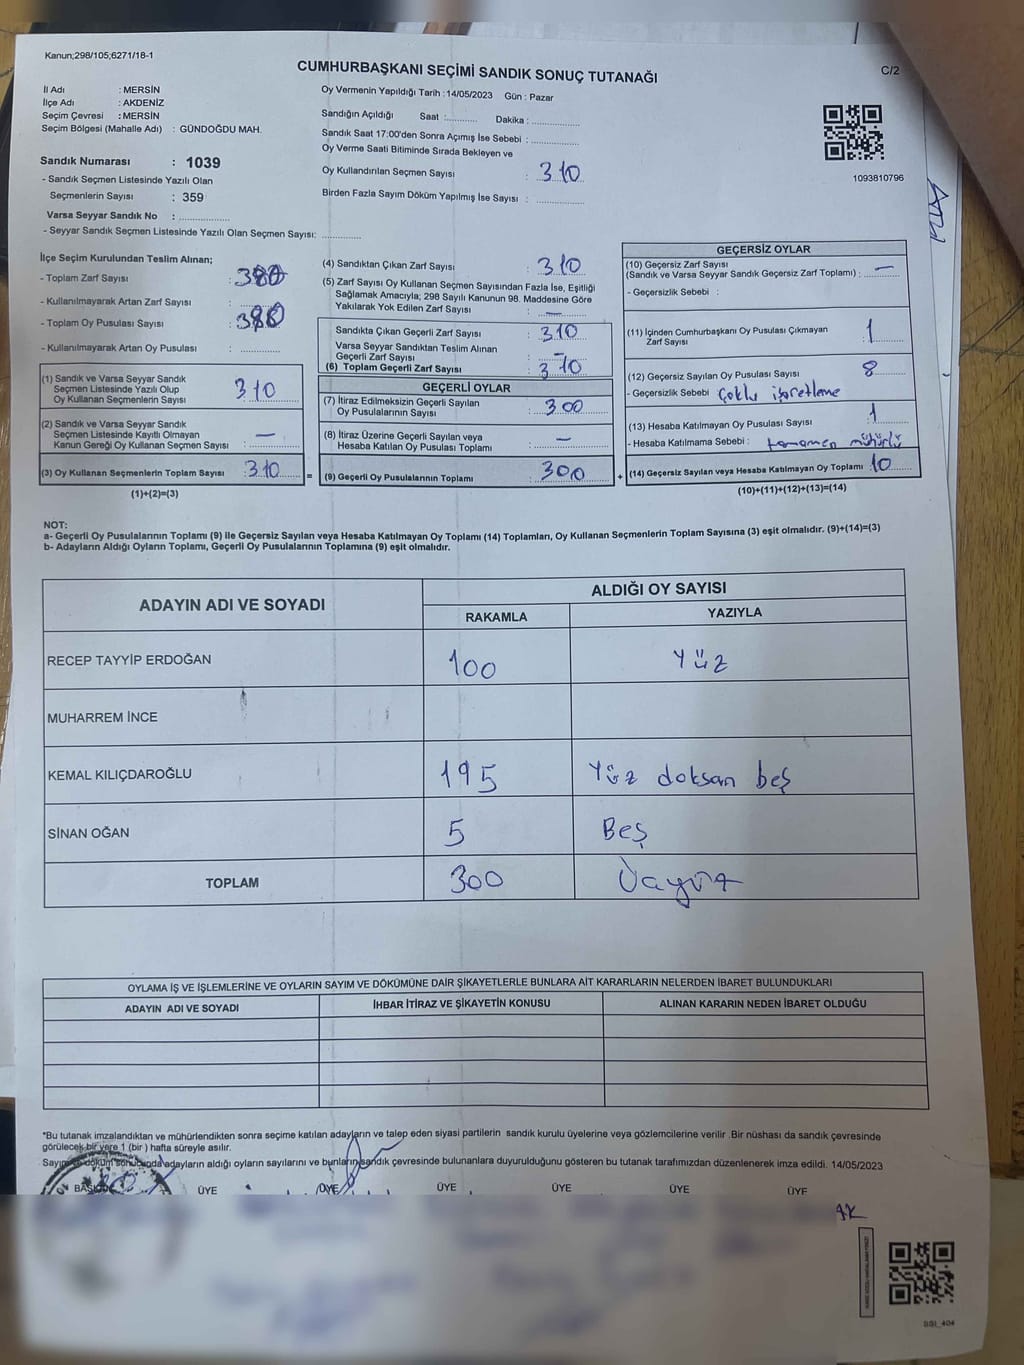 Kanun;298/105;6271/18-1
CUMHURBAŞKANI SEÇİMİ SANDIK SONUÇ TUTANAĞI
C/2
İl Adı : MERSİN
İlçe Adı : AKDENİZ
Seçim Çevresi : MERSİN
Seçim Bölgesi (Mahalle Adı) : GÜNDOĞDU MAH.
Sandık Numarası : 1039
- Sandık Seçmen Listesinde Yazılı Olan
Seçmenlerin Sayısı : 359
Varsa Seyyar Sandık No : ..............
- Seyyar Sandık Seçmen Listesinde Yazılı Olan Seçmen Sayısı: ..............
Oy Vermenin Yapıldığı Tarih : 14/05/2023 Gün : Pazar
Sandığın Açıldığı Saat :.......... Dakika : ..............
Sandık Saat 17:00'den Sonra Açımış İse Sebebi : ..............
Oy Verme Saati Bitiminde Sırada Bekleyen ve
Oy Kullandırılan Seçmen Sayısı : 310
Birden Fazla Sayım Döküm Yapılmış İse Sayısı : ..............
1093810796
İlçe Seçim Kurulundan Teslim Alınan;
- Toplam Zarf Sayısı : 380
- Kullanılmayarak Artan Zarf Sayısı : ..............
- Toplam Oy Pusulası Sayısı : 380
- Kullanılmayarak Artan Oy Pusulası : ..............
(1) Sandık ve Varsa Seyyar Sandık
Seçmen Listesinde Yazılı Olup
Oy Kullanan Seçmenlerin Sayısı : 310
(2) Sandık ve Varsa Seyyar Sandık
Seçmen Listesinde Kayıtlı Olmayan
Kanun Gereği Oy Kullanan Seçmen Sayısı : —
(3) Oy Kullanan Seçmenlerin Toplam Sayısı : 310
(1)+(2)=(3)
(4) Sandıktan Çıkan Zarf Sayısı : 310
(5) Zarf Sayısı Oy Kullanan Seçmen Sayısından Fazla İse, Eşitliği
Sağlamak Amacıyla; 298 Sayılı Kanunun 98. Maddesine Göre
Yakılarak Yok Edilen Zarf Sayısı : —
Sandıkta Çıkan Geçerli Zarf Sayısı : 310
Varsa Seyyar Sandıktan Teslim Alınan
Geçerli Zarf Sayısı : —
(6) Toplam Geçerli Zarf Sayısı : 310
GEÇERLİ OYLAR
(7) İtiraz Edilmeksizin Geçerli Sayılan
Oy Pusulalarının Sayısı : 300
(8) İtiraz Üzerine Geçerli Sayılan veya
Hesaba Katılan Oy Pusulası Toplamı : —
(9) Geçerli Oy Pusulalarının Toplamı : 300
=
+
GEÇERSİZ OYLAR
(10) Geçersiz Zarf Sayısı
(Sandık ve Varsa Seyyar Sandık Geçersiz Zarf Toplamı) : —
- Geçersizlik Sebebi :
(11) İçinden Cumhurbaşkanı Oy Pusulası Çıkmayan
Zarf Sayısı : 1
(12) Geçersiz Sayılan Oy Pusulası Sayısı : 8
- Geçersizlik Sebebi : Çoklu işaretleme
(13) Hesaba Katılmayan Oy Pusulası Sayısı : 1
- Hesaba Katılmama Sebebi : tamamen mühürlü
(14) Geçersiz Sayılan veya Hesaba Katılmayan Oy Toplamı : 10
(10)+(11)+(12)+(13)=(14)
NOT:
a- Geçerli Oy Pusulalarının Toplamı (9) ile Geçersiz Sayılan veya Hesaba Katılmayan Oy Toplamı (14) Toplamları, Oy Kullanan Seçmenlerin Toplam Sayısına (3) eşit olmalıdır. (9)+(14)=(3)
b- Adayların Aldığı Oyların Toplamı, Geçerli Oy Pusulalarının Toplamına (9) eşit olmalıdır.
ADAYIN ADI VE SOYADI
ALDIĞI OY SAYISI
RAKAMLA YAZIYLA
RECEP TAYYİP ERDOĞAN 100 Yüz
MUHARREM İNCE
KEMAL KILIÇDAROĞLU 195 Yüz doksan beş
SİNAN OĞAN 5 Beş
TOPLAM 300
OYLAMA İŞ VE İŞLEMLERİNE VE OYLARIN SAYIM VE DÖKÜMÜNE DAİR ŞİKAYETLERLE BUNLARA AİT KARARLARIN NELERDEN İBARET BULUNDUKLARI
ADAYIN ADI VE SOYADI İHBAR İTİRAZ VE ŞİKAYETİN KONUSU ALINAN KARARIN NEDEN İBARET OLDUĞU
*Bu tutanak imzalandıktan ve mühürlendikten sonra seçime katılan adayların ve talep eden siyasi partilerin sandık kurulu üyelerine veya gözlemcilerine verilir .Bir nüshası da sandık çevresinde
görülecek bir yere 1 (bir ) hafta süreyle asılır.
Sayım ve döküm sonucunda adayların aldığı oyların sayılarını ve bunların sandık çevresinde bulunanlara duyurulduğunu gösteren bu tutanak tarafımızdan düzenlenerek imza edildi. 14/05/2023
BAŞKAN ÜYE ÜYE ÜYE ÜYE ÜYE ÜYE
SSI_404